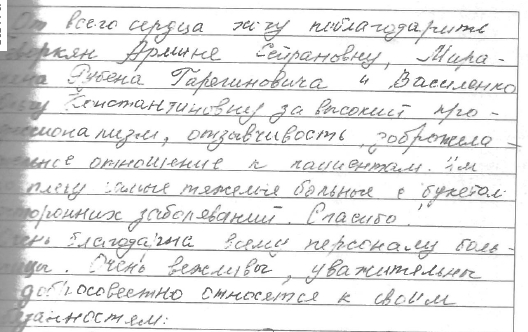 От всего сердца хочу поблагодарить
Геворкян Армине Сейрановну, Мира-
Рубена Гарегиновича и Василенко
Константиновну за высокий про-
фессионализм, отзывчивость, доброжела-
тельное отношение к пациентам. Им
самые тяжёлые больные с "букетом"
сторонних заболеваний. Спасибо!
Очень благодарна всему персоналу боль-
ницы. Очень вежливы, уважительны
добросовестно относятся к своим
обязанностям.